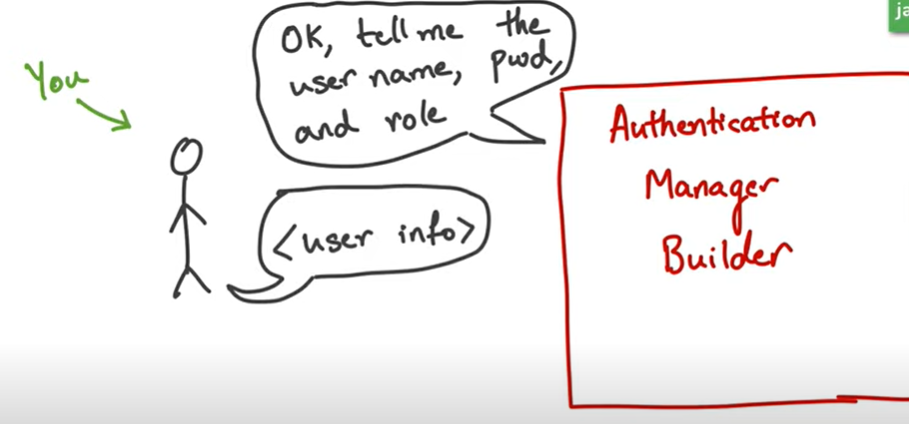 You
OK, tell me the
user name, pwd,
and role
<user info>
Authentication
Manager
Builder
ja